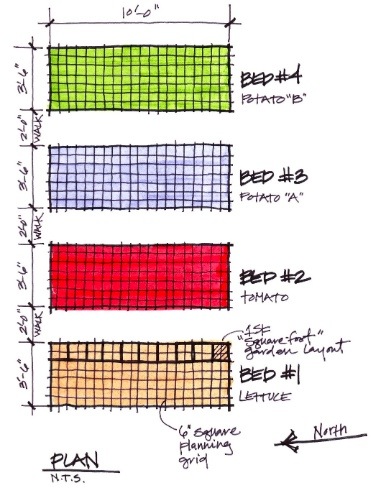 10'-0"
3'-6"
BED #4
POTATO "B"
2'-0"
WALK
3'-6"
BED #3
POTATO "A"
2'-0"
WALK
3'-6"
BED #2
TOMATO
2'-0"
WALK
1SF
"Square foot"
garden layout
3'-6"
BED #1
LETTUCE
6" square
planning
grid
North
PLAN
N.T.S.